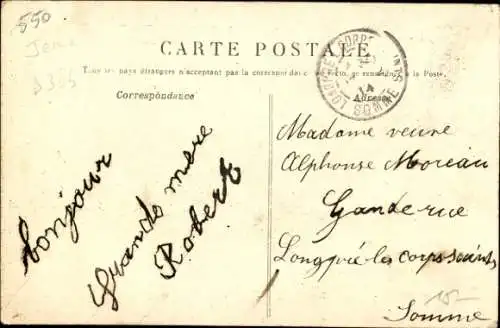 550
Jean
D 365
CARTE POSTALE
Tous les pays étrangers n'acceptent pas la correspondance au recto, se renseigner à la Poste.
Correspondance
Adresse
LONGUE CORPS SAINTS
14
SOMME
bonjour
Grande mere
Robert
Madame veuve
Alphonse Moreau
Gande rue
Longpré les corps saints
Somme
15-